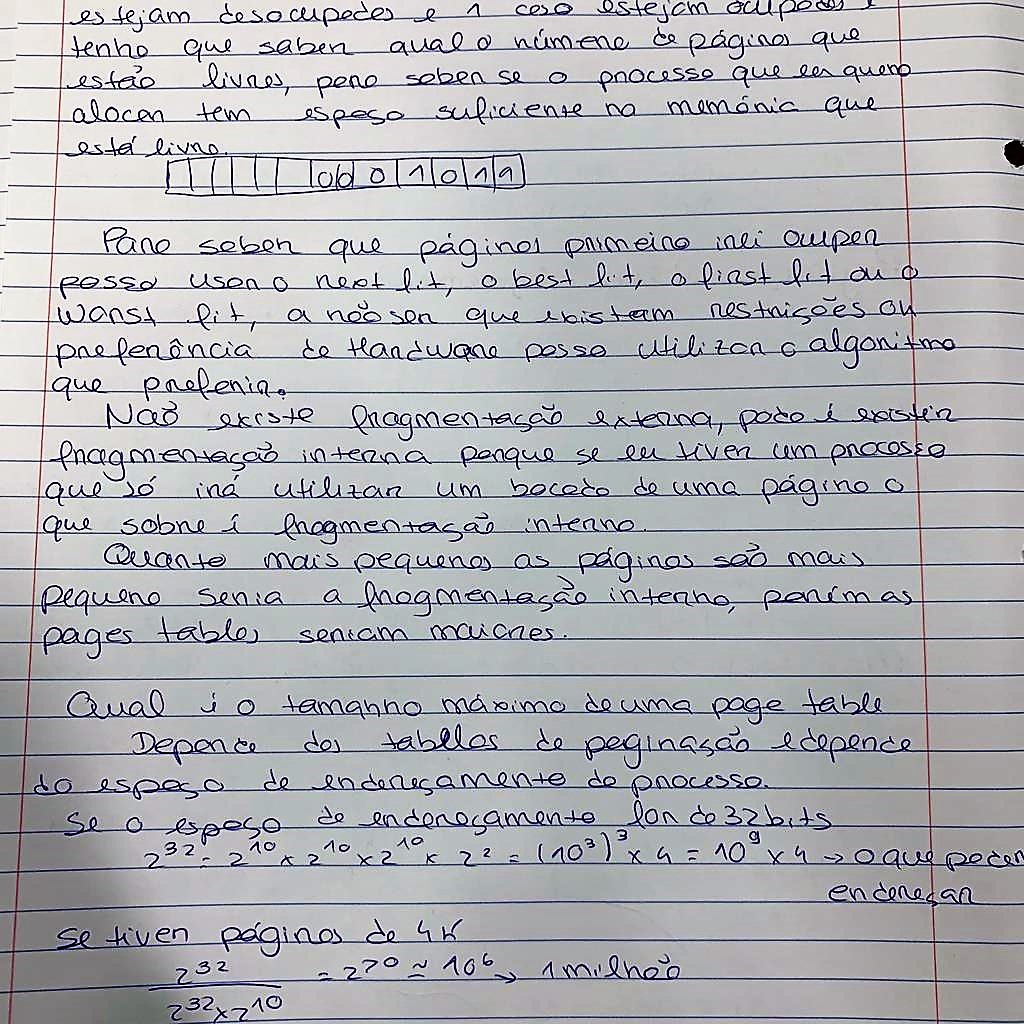 estejam desocupados e 1 caso estejam ocupados e
tenho que saber qual o número de páginas que
estão livres, para saber se o processo que eu quero
alocar tem espaço suficiente na memória que
está livre.
0 0 0 1 0 1 1
Para saber que páginas primeiro irei ocupar
posso usar o next fit, o best fit, o first fit ou o
worst fit, a não ser que existam restrições ou
preferência de Hardware posso utilizar o algoritmo
que preferir.
Não existe fragmentação externa, pode é existir
fragmentação interna porque se eu tiver um processo
que só irá utilizar um bocado de uma página o
que sobra é fragmentação interna.
Quanto mais pequenas as páginas são mais
pequena seria a fragmentação interna, porém as
pages tables seriam maiores.
Qual é o tamanho máximo de uma page table
Depende das tabelas de paginação e depende
do espaço de endereçamento do processo.
Se o espaço de endereçamento for de 32 bits
2^32 = 2^10 x 2^10 x 2^10 x 2^2 = (10^3)^3 x 4 = 10^9 x 4 → o que podem
endereçar
Se tiver páginas de 4K
2^32 / 2^32 x 2^10 = 2^70 ≃ 10^6 → 1 milhão